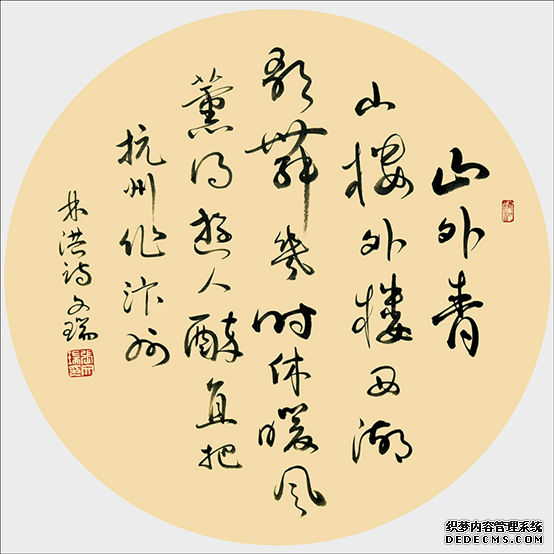 山外青
山楼外楼西湖
歌舞幾时休暖风
薰得遊人醉直把
杭州作汴州
林洪诗文瑞
织梦内容管理系统
DEDECMS.COM